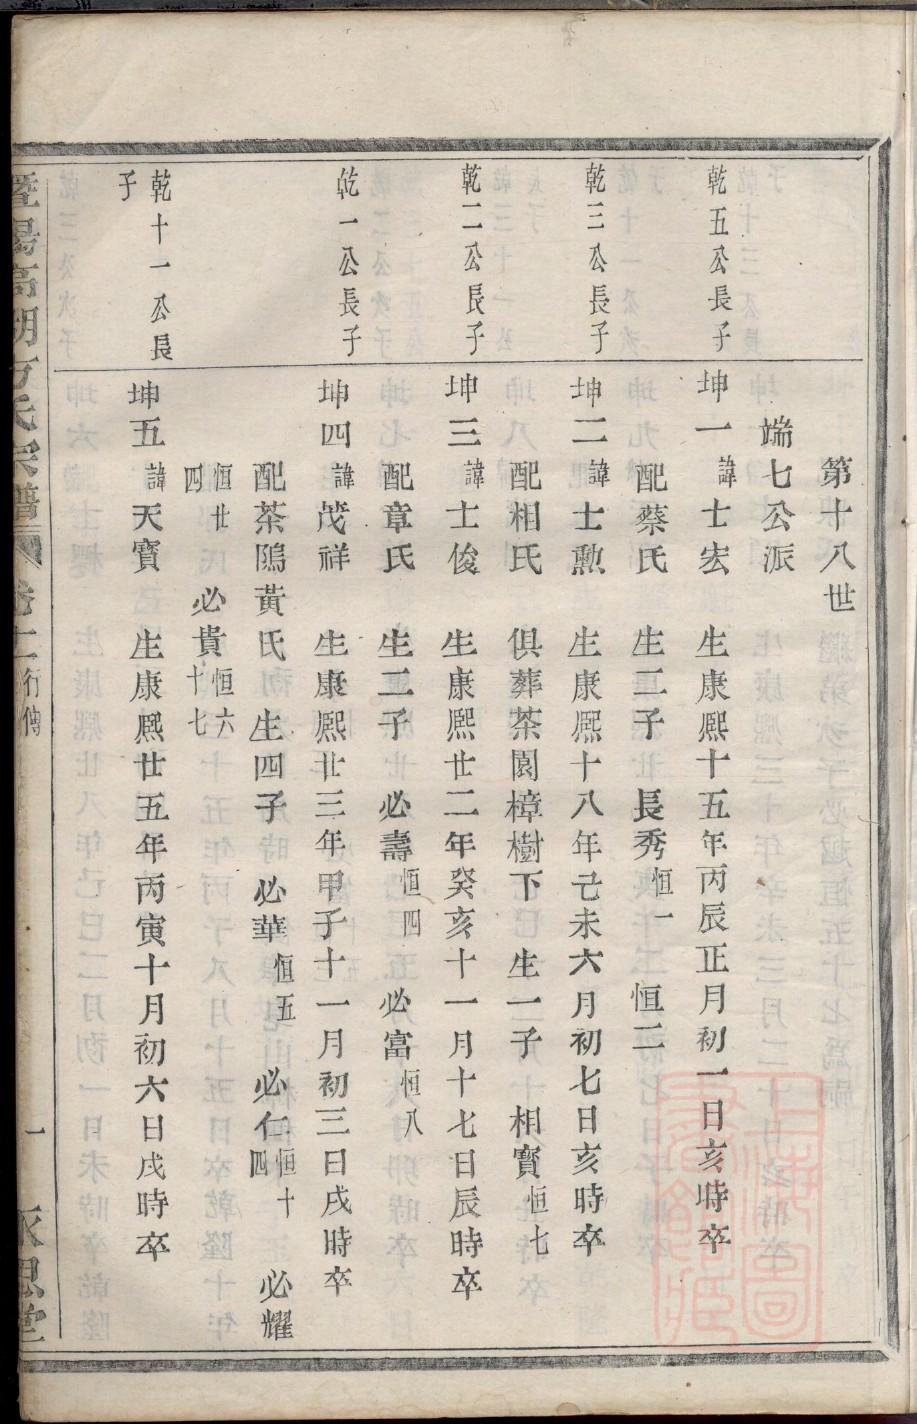 第十八世
端七公派
乾五公長子
坤一諱士宏 生康熙十五年丙辰正月初一日亥時卒
配蔡氏 生二子 長秀恒一 恒二
乾三公長子
坤二諱士勲 生康熙十八年己未六月初七日亥時卒
配相氏 俱葬茶園樟樹下 生一子 相寳恒七
乾二公長子
坤三諱士俊 生康熙廿二年癸亥十一月十七日辰時卒
配章氏 生二子 必壽恒四 必富恒八
乾一公長子
坤四諱茂祥 生康熙廿三年甲子十一月初三日戌時卒
配茶隝黃氏 生四子 必華恒五 必仁恒十四 必耀
恒廿四 必貴恒六十七
乾十一公長子
坤五諱天寳 生康熙廿五年丙寅十月初六日戌時卒
暨陽高湖方氏宗譜 卷十 行傳 一 永思堂